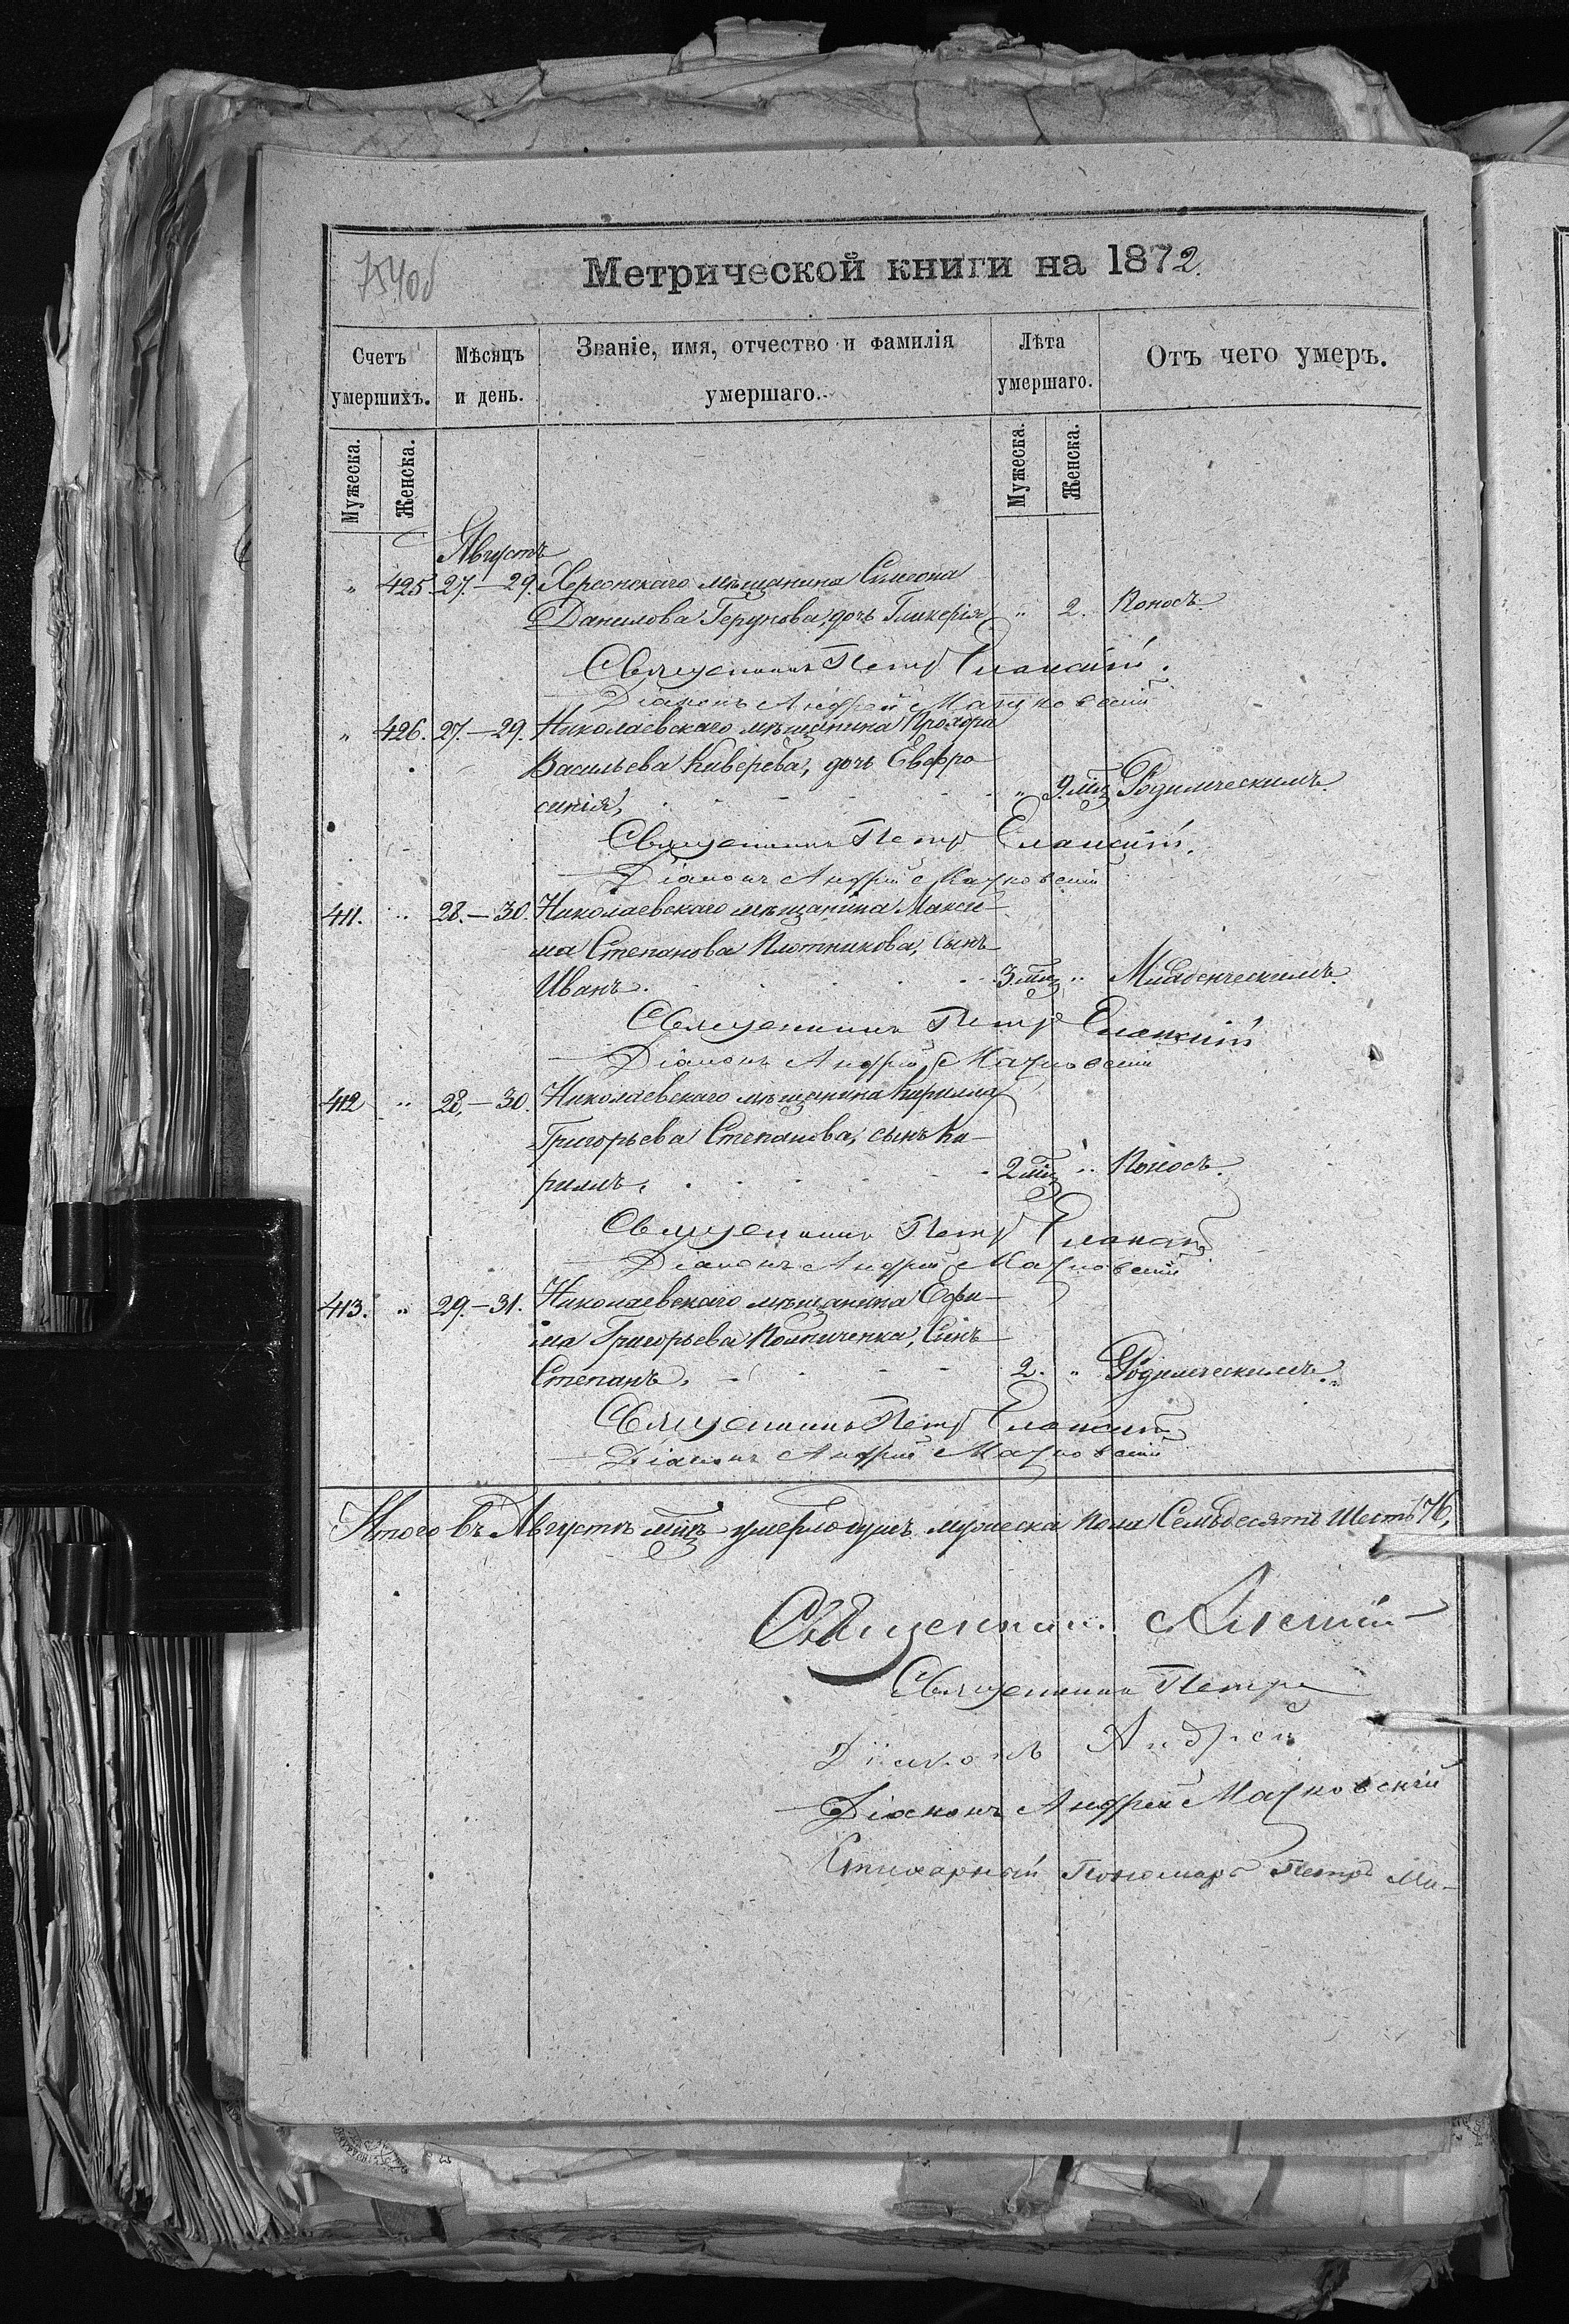 754об
Метрической книги на 1872.
Счетъ умершихъ.
Мѣсяцъ и день.
Званіе, имя, отчество и фамилія умершаго.
Лѣта умершаго.
Отъ чего умеръ.
Мужеска.
Женска.
Мужеска.
Женска.
Августъ
" 425. 27.–29. Херсонскаго мѣщанина Симеона
Данилова Герунова, дочь Гликерія " 2. Поносъ.
Священникъ Петръ Еланскій.
Діаконъ Андрей Мачковскій
" 426. 27.–29. Николаевскаго мѣщанина Прохора
Васильева Каверева, дочь Евфро-
синія, " 9. мц Родимческимъ.
Священникъ Петръ Еланскій.
Діаконъ Андрей Мачковскій
411. " 28.–30. Николаевскаго мѣщанина Макси-
ма Степанова Плотникова, сынъ
Иванъ. 3 мц " Младенческимъ.
Священникъ Петръ Еланскій
Діаконъ Андрей Мачковскій
412 " 28.–30. Николаевскаго мѣщанина Кирилла
Григорьева Степанова, сынъ Ки-
риллъ. 2 мц " Поносъ.
Священникъ Петръ Еланскій
Діаконъ Андрей Мачковскій
413. " 29.–31. Николаевскаго мѣщанина Ефи-
ма Григорьева сынъ
Степанъ. 2. " Родимческимъ.
Священникъ Петръ Еланскій
Діаконъ Андрей Мачковскій
Итого въ Августѣ мцѣ умерло душъ мужеска пола Семьдесятъ Шесть 76,
Священникъ
Священникъ Петръ
Діаконъ Андрей
Діаконъ Андрей Мачковскій
Стихарный Пономарь Петръ Ма-